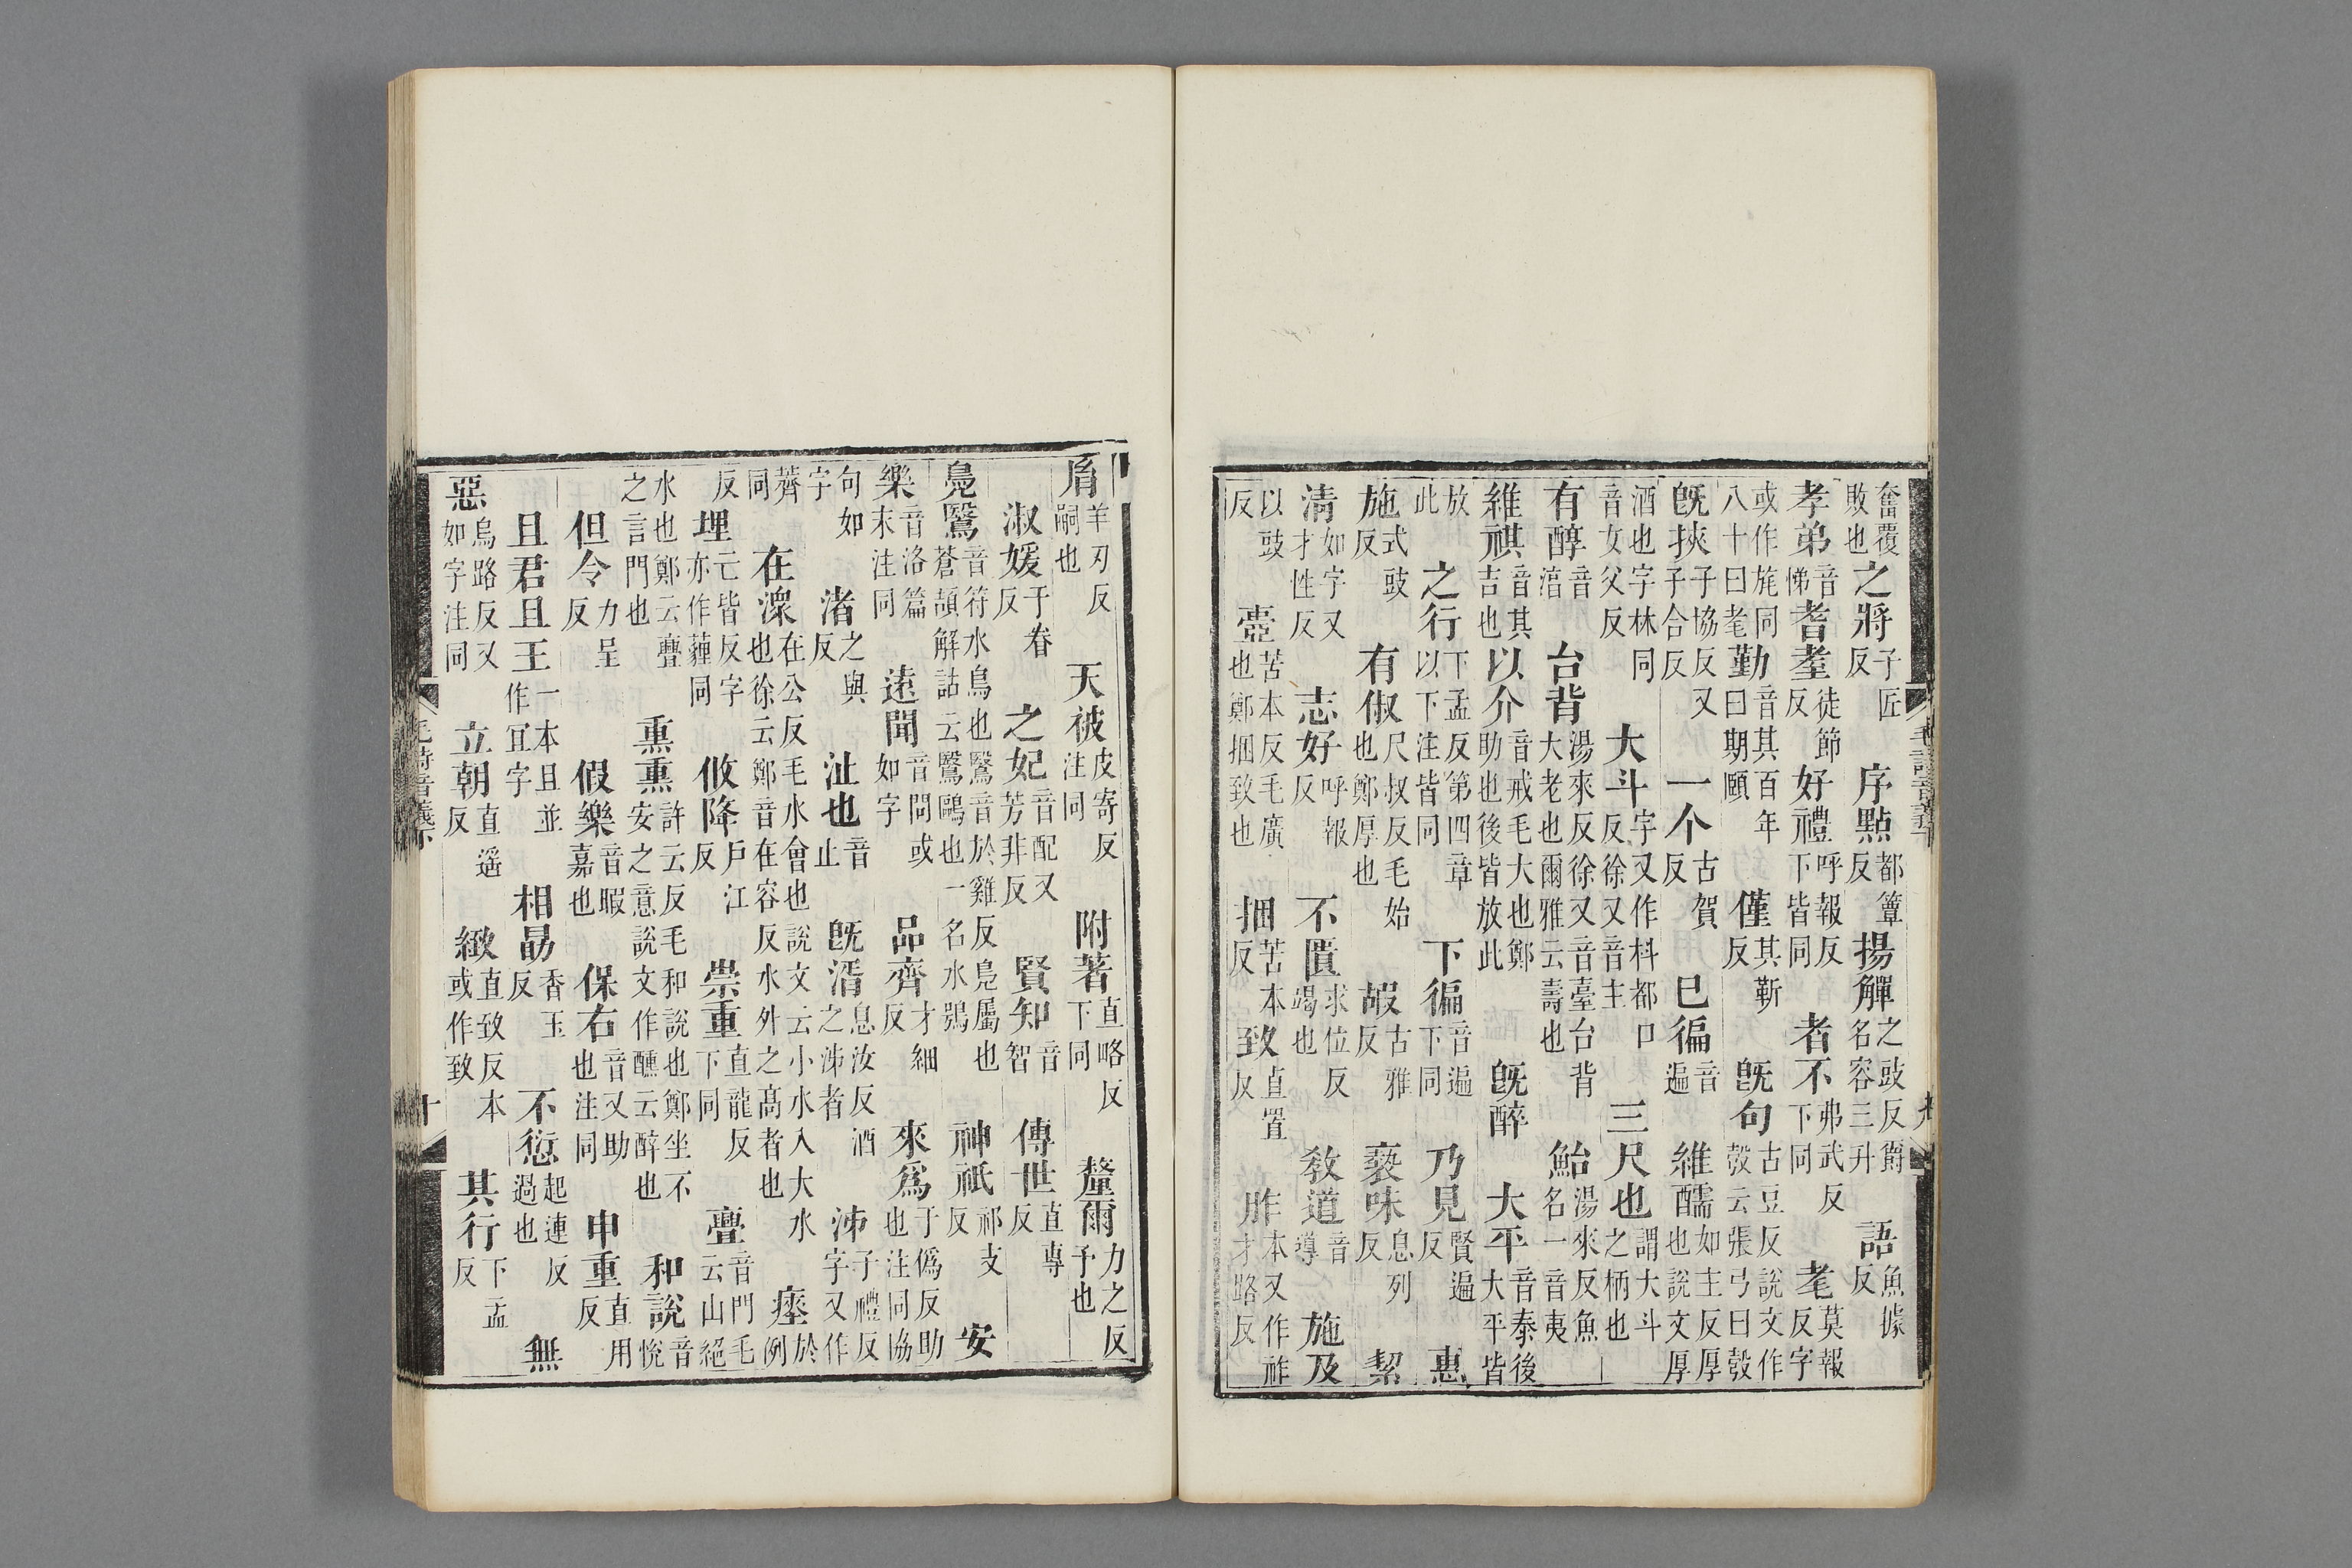 奮覆敗也 之將子匠反 序點都簟反 揚觶之豉反爵名容三升 語魚據反
孝弟音悌 耆耋徒節反 好禮呼報反下皆同 者不弗武反下同 耄莫報反字
或作旄同八十曰耄 勤音其百年曰期頤 僅其靳反 旣句古豆反說文作彀云張弓曰彀
旣挾子協反又子合反 一个古賀反 已徧音遍 維醹如主反厚也說文厚
酒也字林同音女父反 大斗字又作枓都口反徐又音主 三尺也謂大斗之柄也
有醇音湻 台背湯來反徐又音臺台背大老也爾雅云壽也 鮐湯來反魚名一音夷
維祺音其吉也 以介音戒毛大也鄭助也後皆放此 旣醉 大平音泰後大平皆
放此 之行下孟反第四章以下注皆同 下徧音遍下同 乃見賢遍反 惠
施式豉反 有俶尺叔反毛始也鄭厚也 嘏古雅反 褻味息列反 絜
清如字又才性反 志好呼報反 不匱求位反竭也 敎道音導 施及
以豉反 壼苦本反毛廣也鄭捆致也 捆苦本反 致直置反 胙本又作祚才路反
胤羊刃反嗣也 天被皮寄反注同 附著直略反下同 釐爾力之反予也
淑媛于卷反 之妃音配又芳非反 賢知音智 傳世直專反
鳧鷖音符水鳥也鷖音於雞反鳧屬也蒼頡解詁云鷖鷗也一名水鴞 神祇祁支反 安
樂音洛篇末注同 遠聞音問或如字 品齊才細反 來爲于僞反助也注同協
句如字 渚之與反 沚也音止 旣湑息汝反酒之泲者 泲子禮反字又作
同 在潀在公反毛水會也說文云小水入大水也徐云鄭音在容反水外之髙者也 瘞於例
反 埋亡皆反字亦作薶同 攸降戶江反 崇重直龍反下同 亹音門毛云山絕
水也鄭云亹之言門也 熏熏許云反毛和說也鄭坐不安之意說文作醺云醉也 和說音悅
但令力呈反 假樂音暇嘉也 保右音又助也注同 申重直用反
且君且王一本且並作宜字 相朂香玉反 不愆起連反過也 無
惡烏路反又如字注同 立朝直遥反 緻直致反本或作致 其行下孟反
毛詩音義下 十